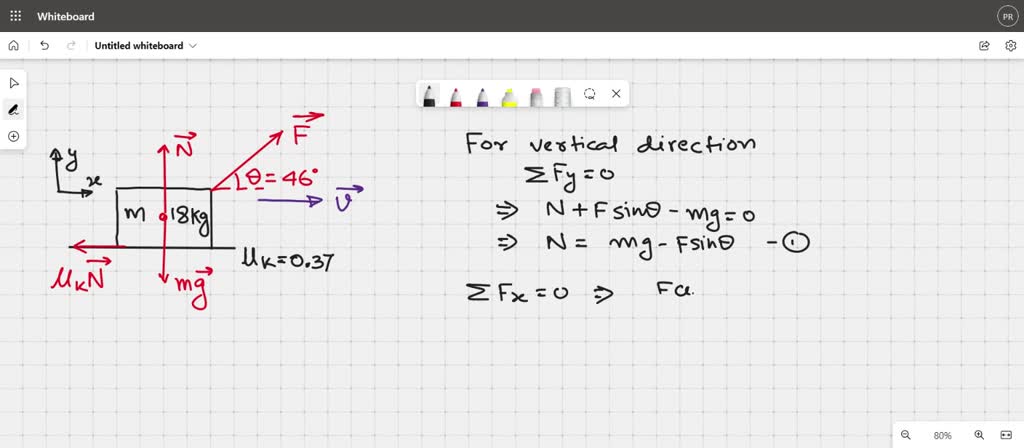 Whiteboard
PR
Untitled whiteboard
y
x
N
F
θ = 46°
v
m 18kg
μkN
mg
μk=0.37
For vertical direction
ΣFy=0
⇒ N+Fsinθ-mg=0
⇒ N= mg-Fsinθ -①
ΣFx=0 ⇒ Fc
80%